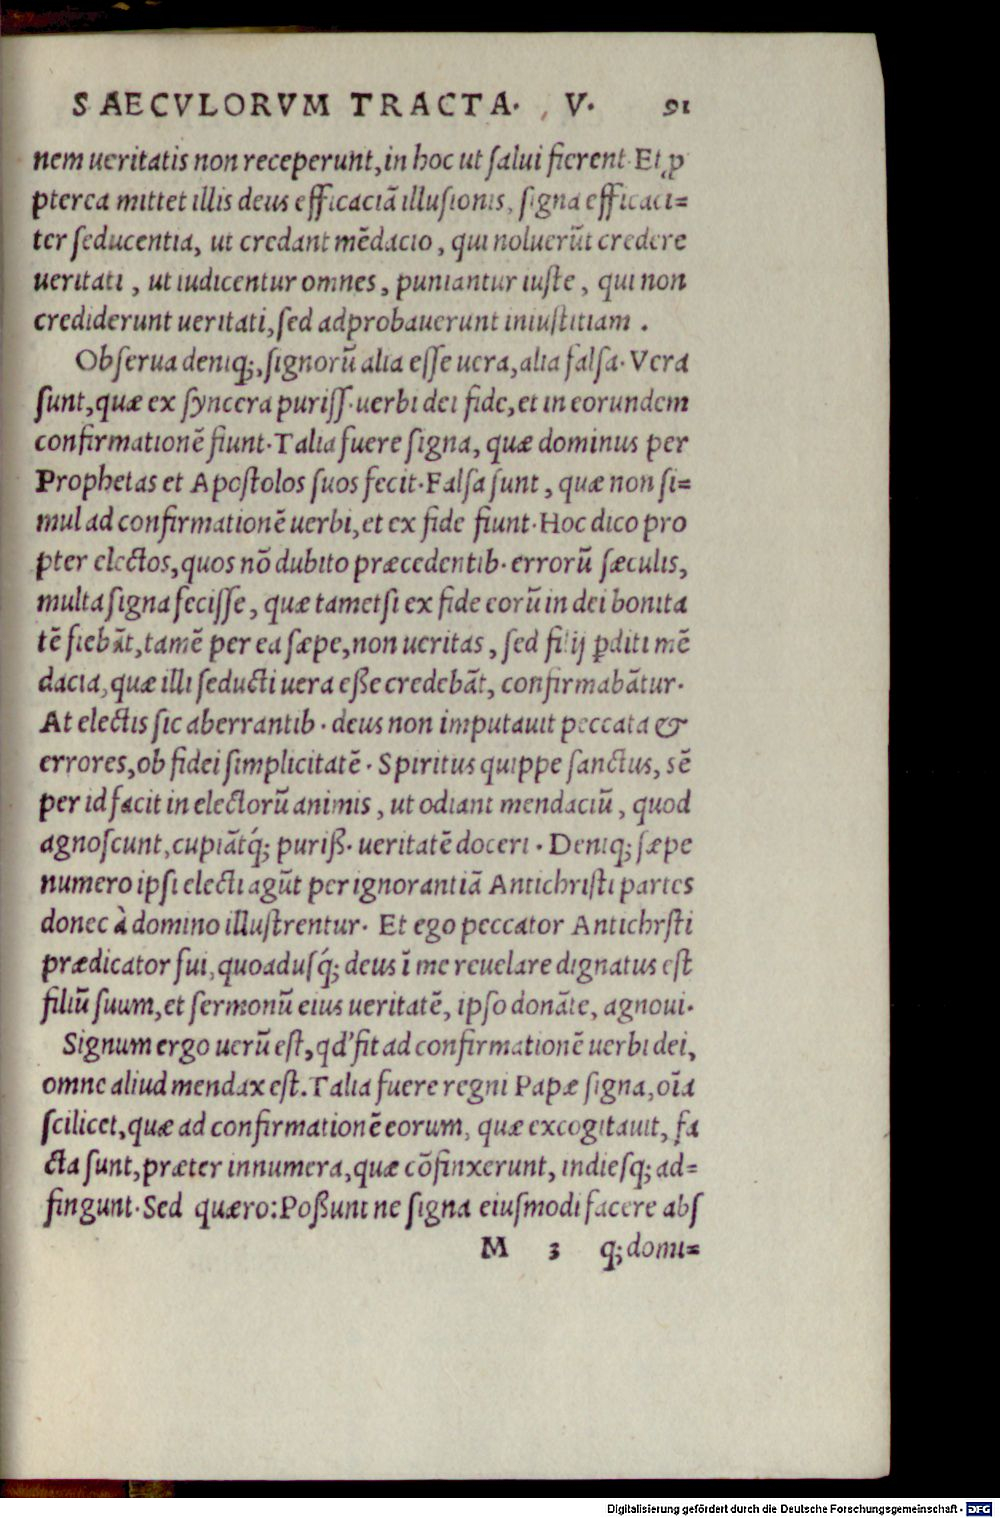 SAECVLORVM TRACTA. V. 91
nem ueritatis non receperunt, in hoc ut ſalui fierent. Et ꝓ
pterea mittet illis deus efficaciā illuſionis, ſigna efficaci=
ter ſeducentia, ut credant mēdacio, qui noluerūt credere
ueritati, ut iudicentur omnes, puniantur iuſte, qui non
crediderunt ueritati, ſed adprobauerunt iniuſtitiam.
Obſerua deniq;, ſignorū alia eſſe uera, alia falſa. Vera
ſunt, quæ ex ſyncera puriſſ. uerbi dei fide, et in eorundem
confirmationē fiunt. Talia fuere ſigna, quæ dominus per
Prophetas et Apoſtolos ſuos fecit. Falſa ſunt, quæ non ſi=
mul ad confirmationē uerbi, et ex fide fiunt. Hoc dico pro
pter electos, quos nō dubito præcedentib. errorū ſæculis,
multa ſigna feciſſe, quæ tametſi ex fide eorū in dei bonita
tē fiebāt, tamē per ea ſæpe, non ueritas, ſed filij ꝑditi mē
dacia, quæ illi ſeducti uera eße credebāt, confirmabātur.
At electis ſic aberrantib. deus non imputauit peccata &
errores, ob fidei ſimplicitatē. Spiritus quippe ſanctus, sē
per id facit in electorū animis, ut odiant mendaciū, quod
agnoſcunt, cupiātq́; puriß. ueritatē doceri. Deniq; ſæpe
numero ipſi electi agūt per ignorantiā Antichriſti partes
donec à domino illuſtrentur. Et ego peccator Antichrſti
prædicator fui, quoaduſq́; deus ī me reuelare dignatus eſt
filiū ſuum, et ſermonū eius ueritatē, ipſo donāte, agnoui.
Signum ergo uerū eſt, qd' fit ad confirmationē uerbi dei,
omne aliud mendax eſt. Talia fuere regni Papæ ſigna, oīa
ſcilicet, quæ ad confirmationē eorum, quæ excogitauit, fa
cta ſunt, præter innumera, quæ cōfinxerunt, indieſq; ad=
fingunt. Sed quæro: Poßunt ne ſigna eiuſmodi facere abſ
M 3 q; domi=
Digitalisierung gefördert durch die Deutsche Forschungsgemeinschaft - DFG